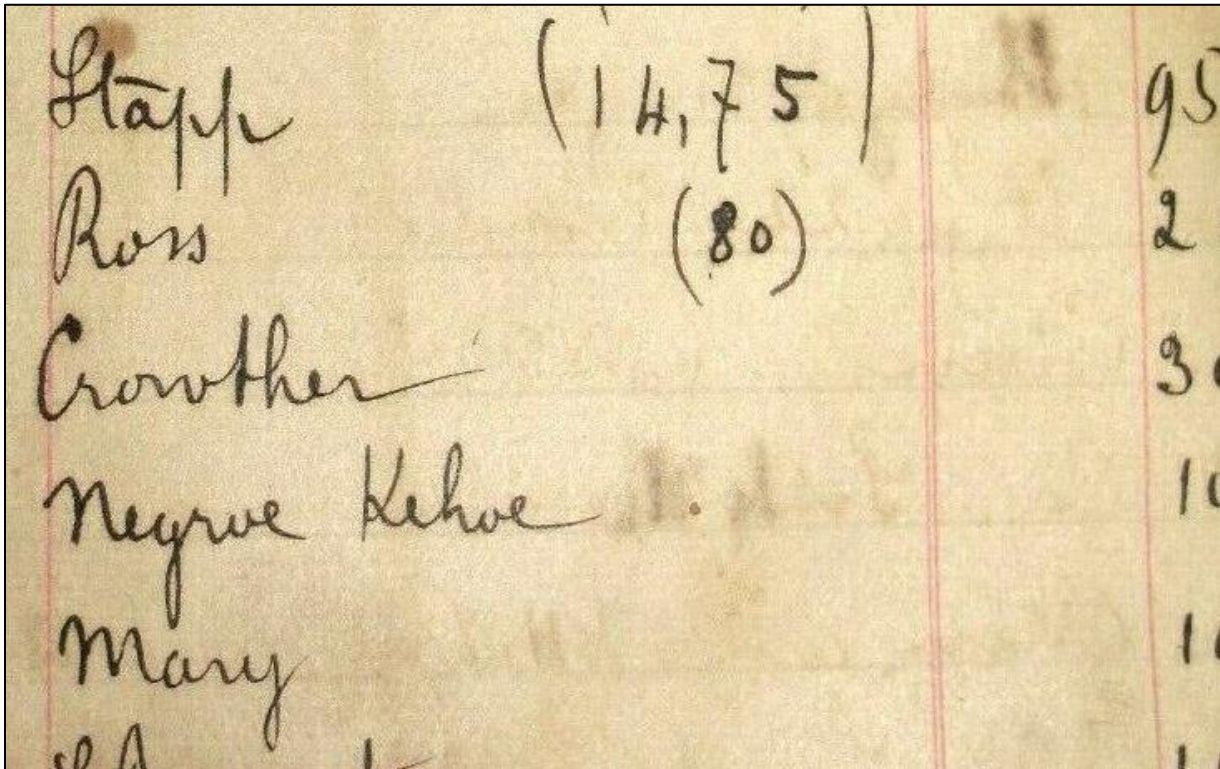 Stapp (14,75) 95
Ross (80) 2
Crowther 30
Negroe Kehoe 10
Mary 10